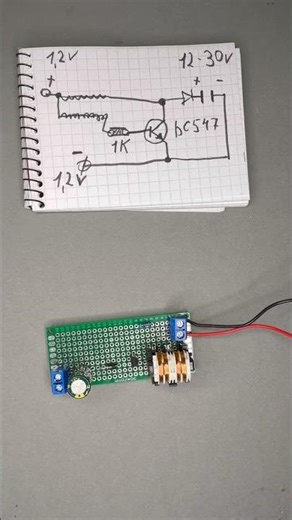 1,2V 12-30V
+ + -
1K BC547
-
1,2V